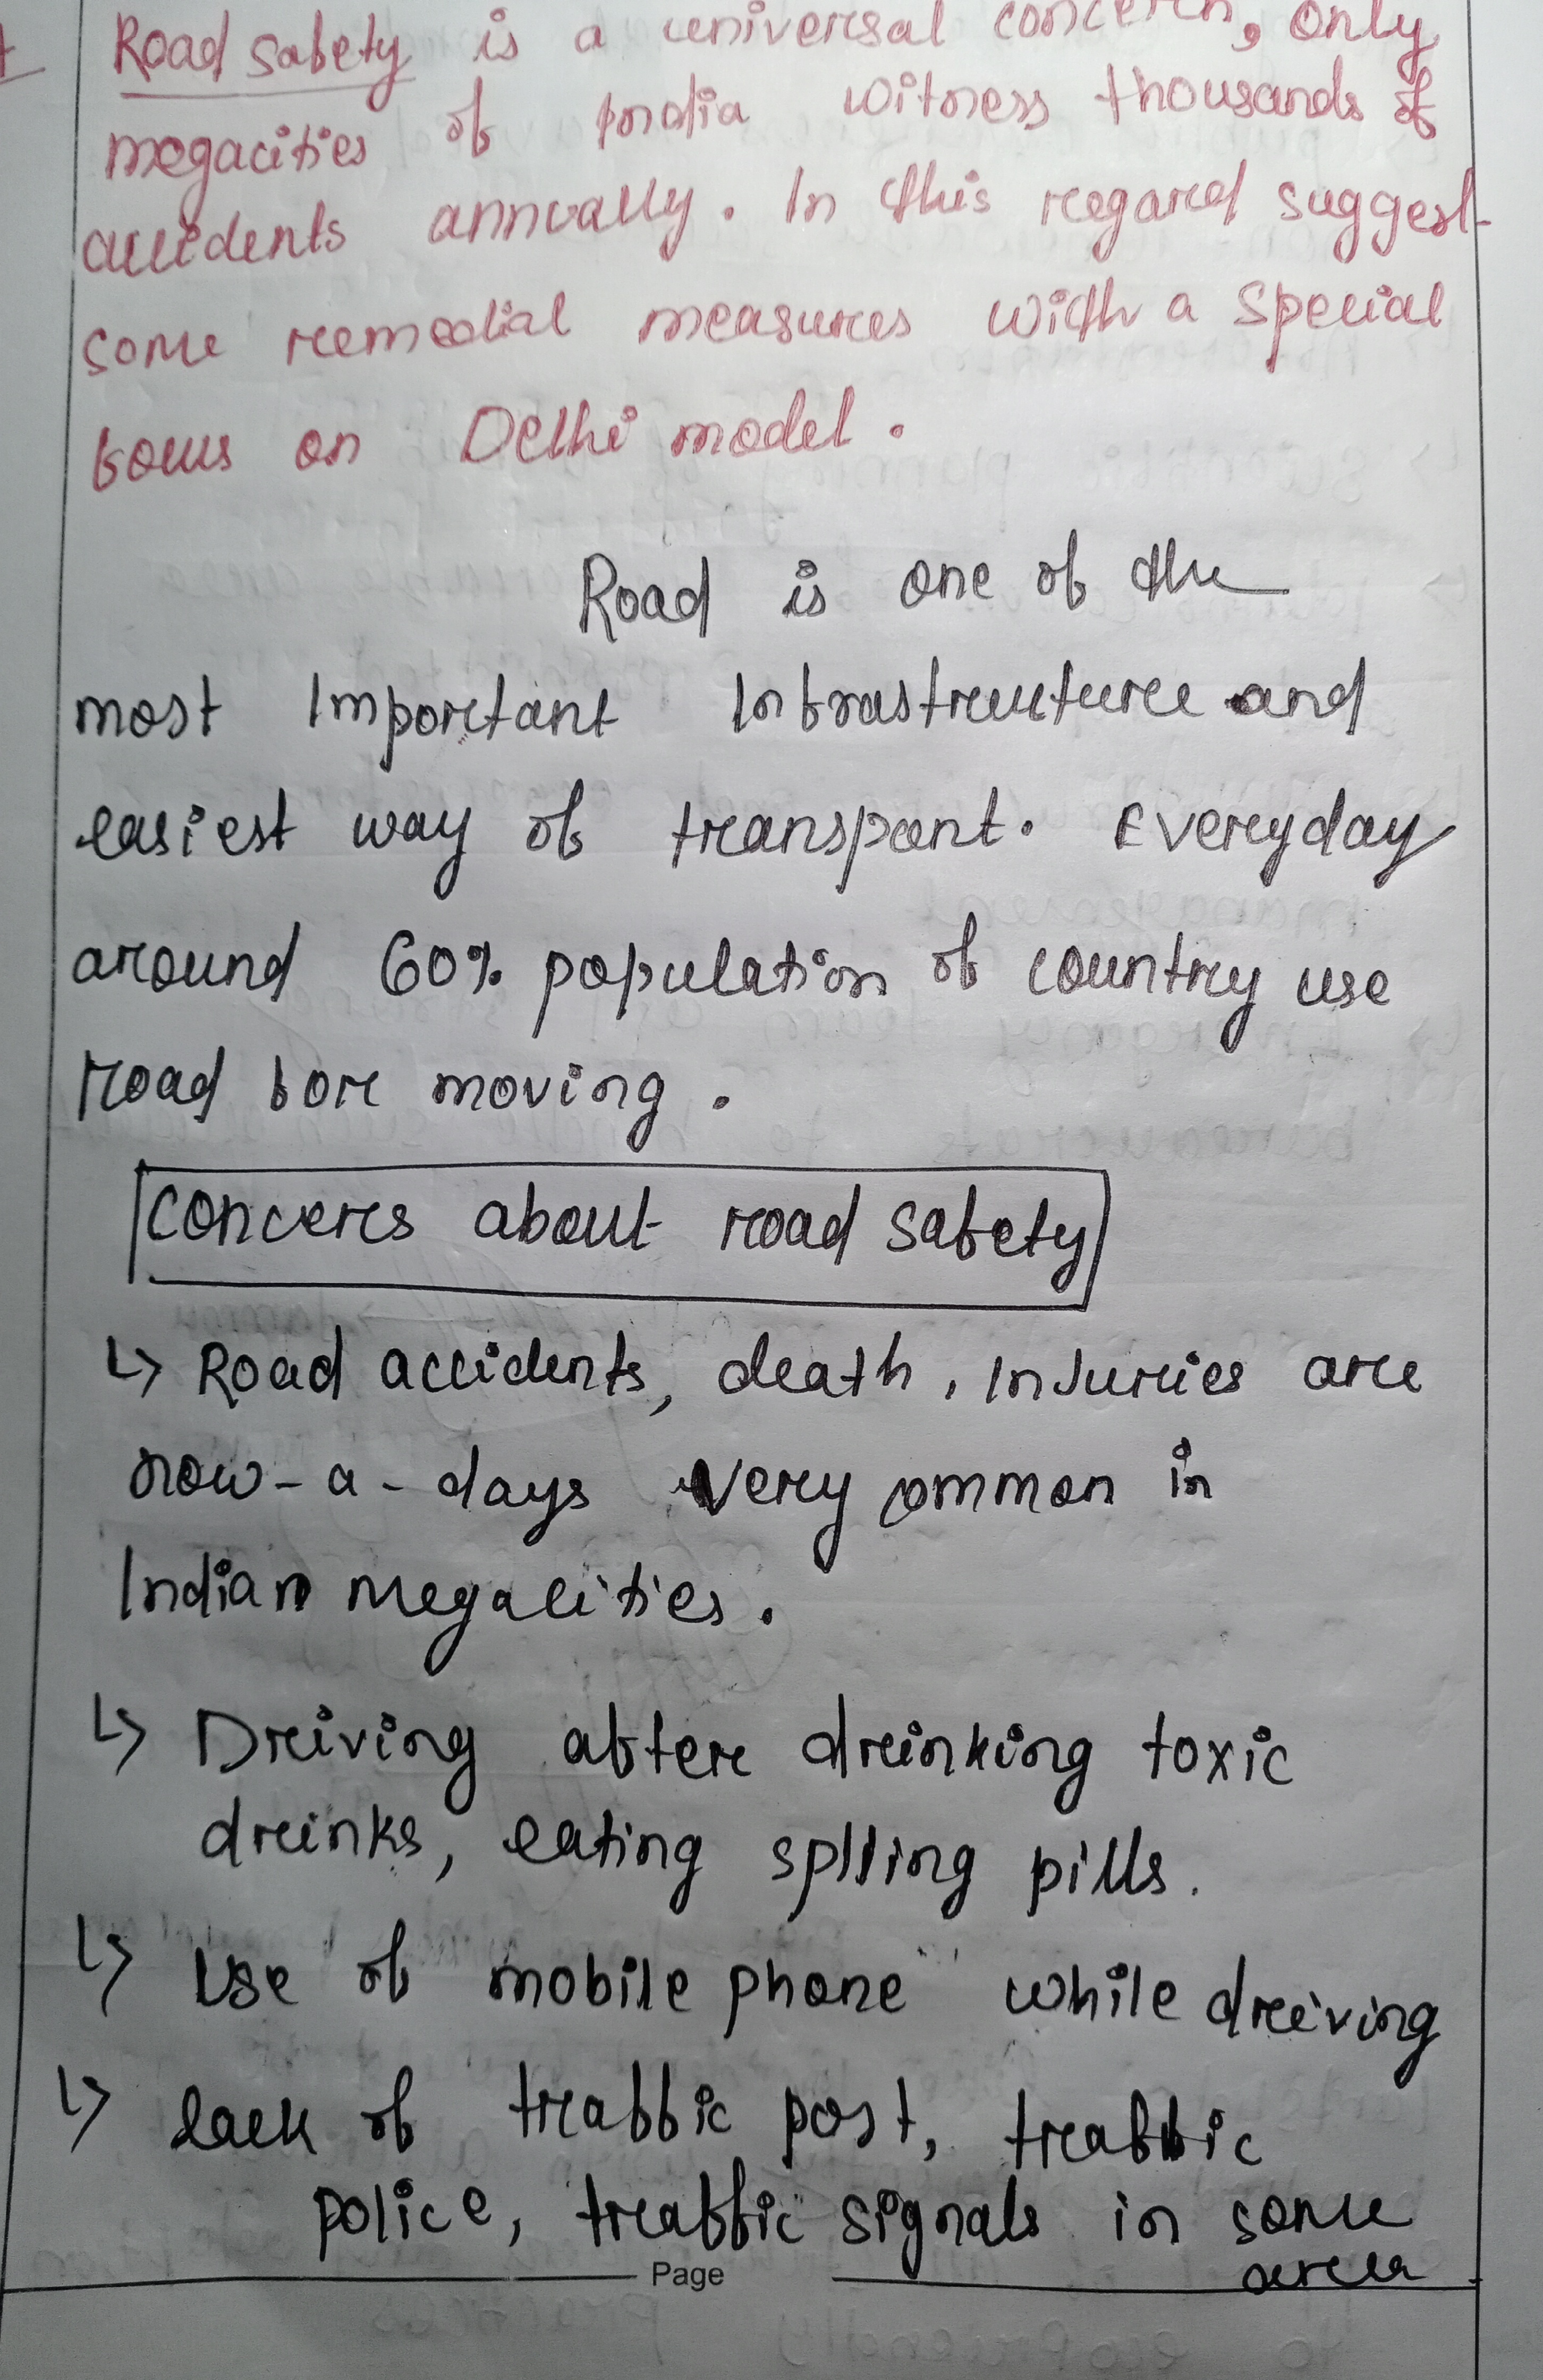 Road safety is a universal concern, only
megacities of India witness thousands of
accidents annually. In this regard suggest
some remedial measures with a special
focus on Delhi model.
Road is one of the
most Important Infrastructure and
easiest way of transport. Everyday
around 60% population of country use
road for moving.
Concers about road safety
↳ Road accidents, death, Injuries are
now-a-days very common in
Indian megacities.
↳ Driving after drinking toxic
drinks, eating splling pills.
↳ Use of mobile phone while driving
↳ lack of traffic post, traffic
police, traffic signals in some
area
Page